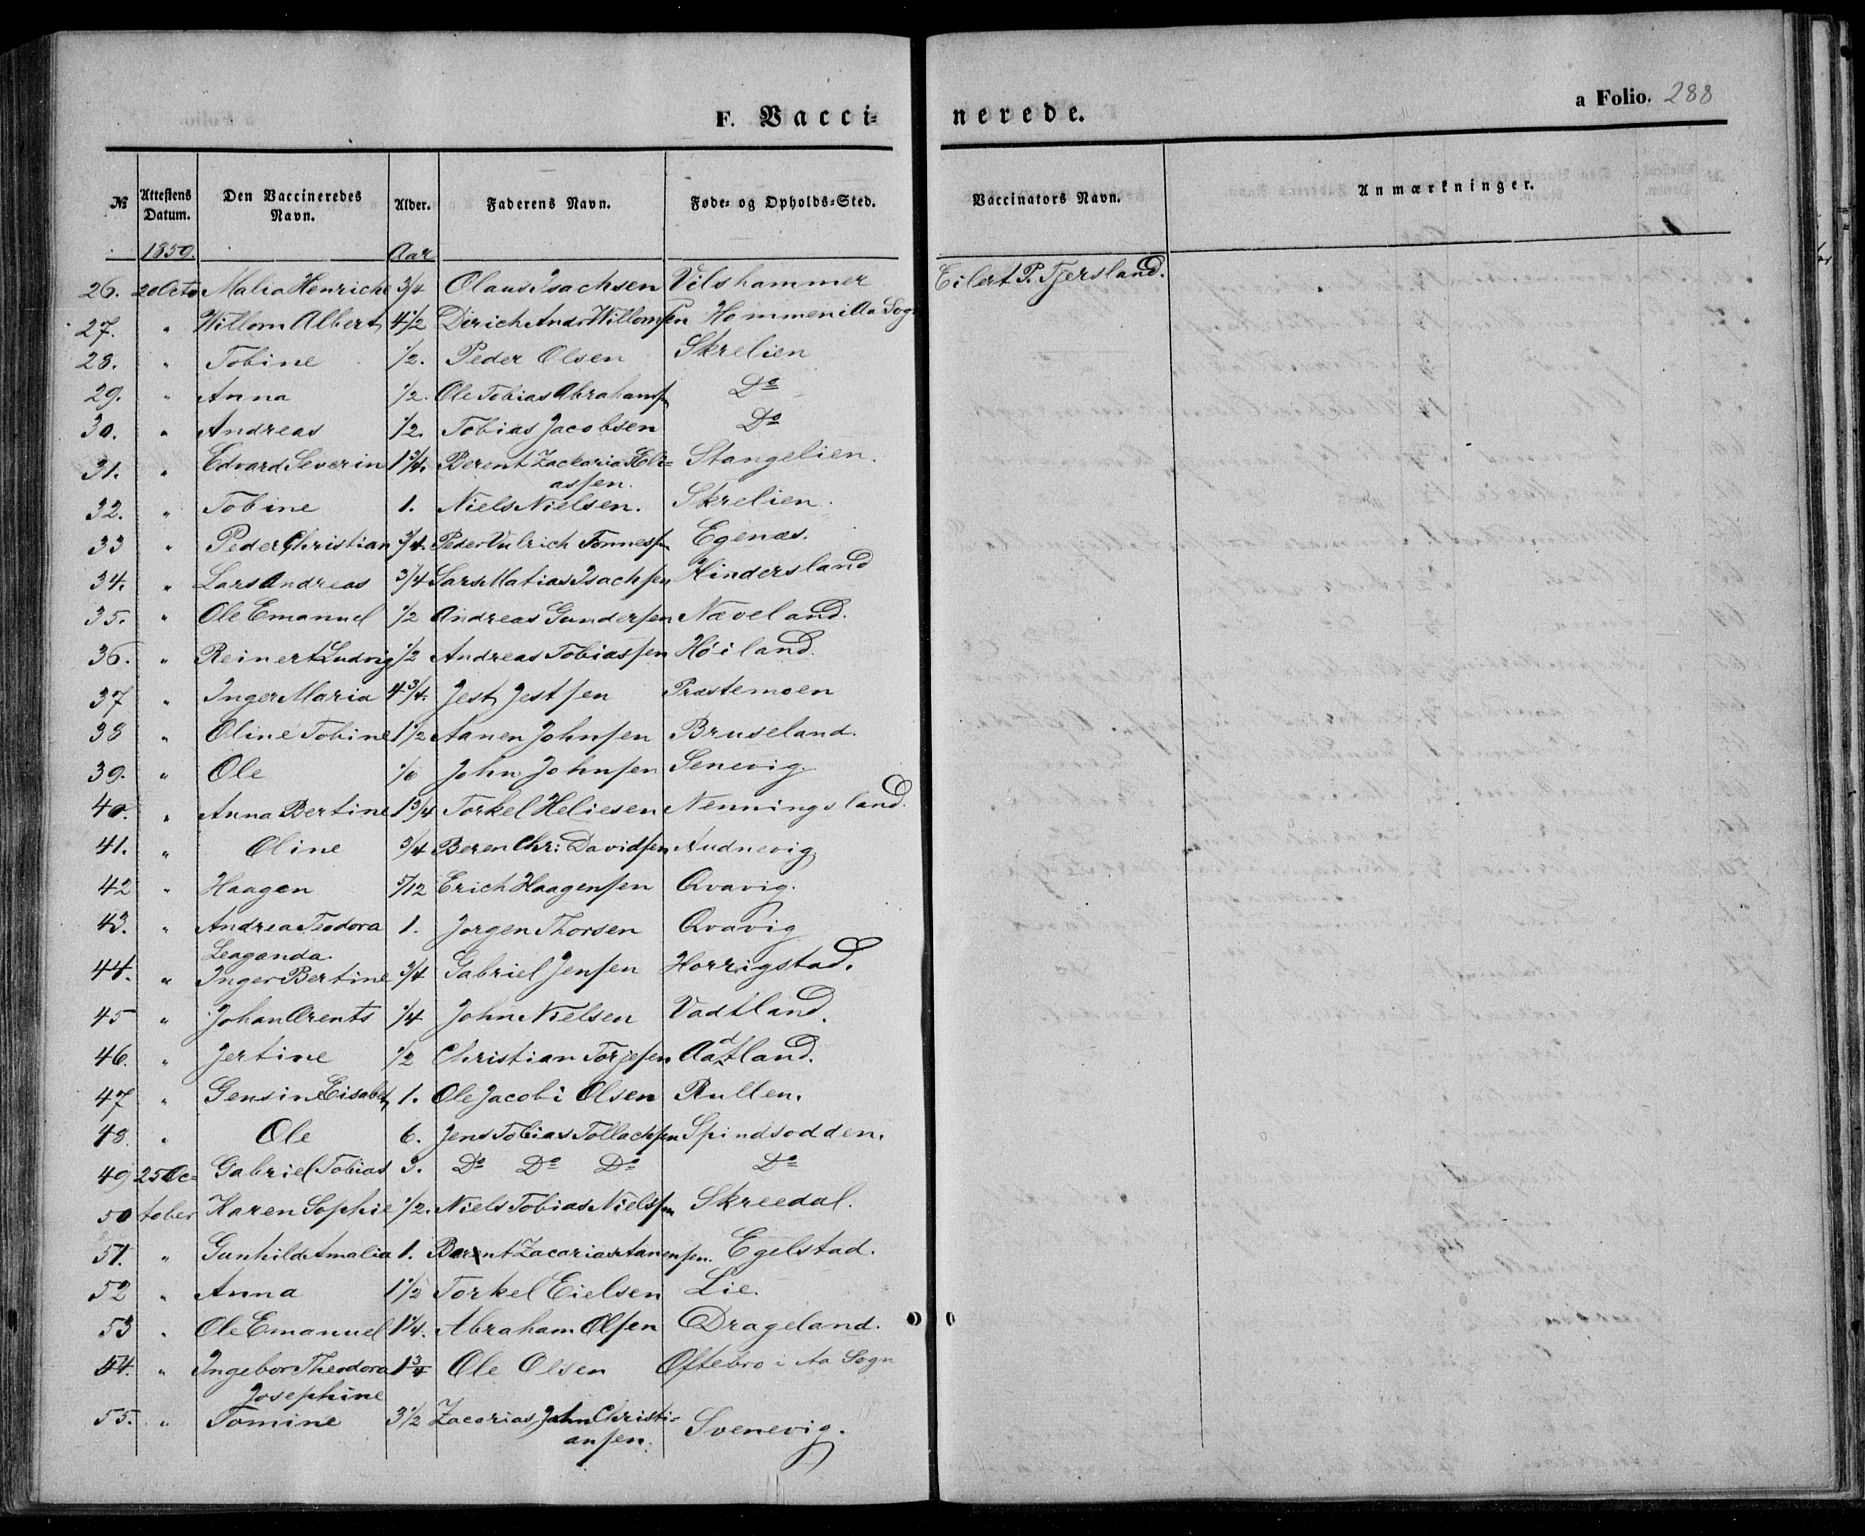 F. Vacci=
nerede.
a Folio. 288
№ Attestens Datum. Den Vaccineredes Navn. Alder. Faderens Navn. Føde= og Opholds=Sted. Vaccinators Navn. Anmærkninger.
1859. Aar
26. 20 Octo Malia Henriche 3/4 Olaus Isachsen Vilshammer Eilert P. Tjersland.
27. " Willom Albert 4 1/2 Dirich Andr Willomsen Hommen i Aa Sogn
28. " Tobine 1/2. Peder Olsen Skrelien
29. " Anna 1/2. Ole Tobias Abrahams Do
30. " Andreas 1/2. Tobias Jacobsen Do
31. " Edvard Severin 1 3/4. Berent Zackarias Eli= Stangelien.
assen.
32. " Tobine 1. Niels Nielsen. Skrelien.
33 " Peder Christian 3/4. Peder Vulrich Tønnes Egenæs.
34. " Lars Andreas 3/4 Lars Matias Isachsen Hindersland
35. " Ole Emanuel 1/2 Andreas Gundersen Næveland.
36. " Reinert Ludvig 1/2 Andreas Tobiassen Høiland.
37 " Inger Maria 4 3/4. Jest Jestsen Præstemoen
38 " Oline Tobine 1 1/2 Aanen Johnsen Bruseland.
39. " Ole John Johnsen Senevig
40. " Anna Bertine 1 3/4 Torkel Heliesen Nenningsland.
41. " Oline 3/4 Beren Chr: Davidsen Audnevig
42 " Haagen 5/12 Erich Haagensen Qvavig.
43. " Andrea Teodora 1. Jørgen Thorsen Qvavig
Leaganda.
44. " Inger Bertine 3/4 Gabriel Jensen Horrigstad.
45 " Johan Arents 1/4 John Nielsen Vadtland.
46. " Jertine 1/2 Christian Torjesen Aadtland.
47 " Gensine Elisabet 1. Ole Jacobi Olsen Rullen.
48. " Ole 6. Jens Tobias Tollachsen Spindsodden.
49 25 Oc= Gabriel Tobias 3. Do Do Do Do
50 tober Karen Sophie 1/2. Niels Tobias Nielssen Skreedal.
51. " Gunhild Amalia 1. Barent Zacarias Aanensen. Egelstad.
52 " Anna 1 1/2 Torkel Eielsen Lie.
53 " Ole Emanuel 1 1/4. Abraham Olsen Drageland.
54. " Ingebor Theodora 1 3/4 Ole Olsen Øftebro i Aa Sogn
Josephine
55. " Tomine 3 1/2 Zacarias John Christi= Svenevig.
ansen.